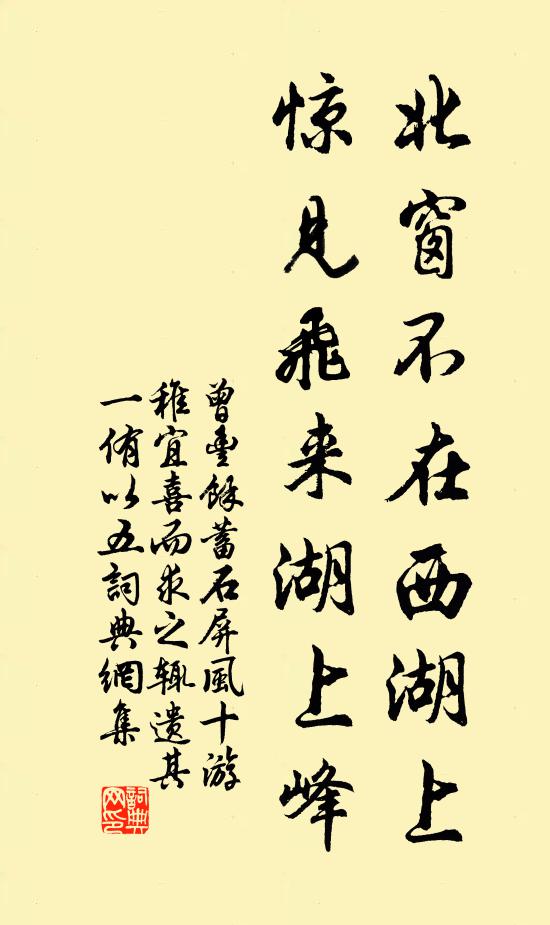 北窗不在西湖上
惊见飛来湖上峰
曾豊餘蓄石屏風十游
稚宜喜而求之輒遗其
一侑以五詞典網集
詞典网印